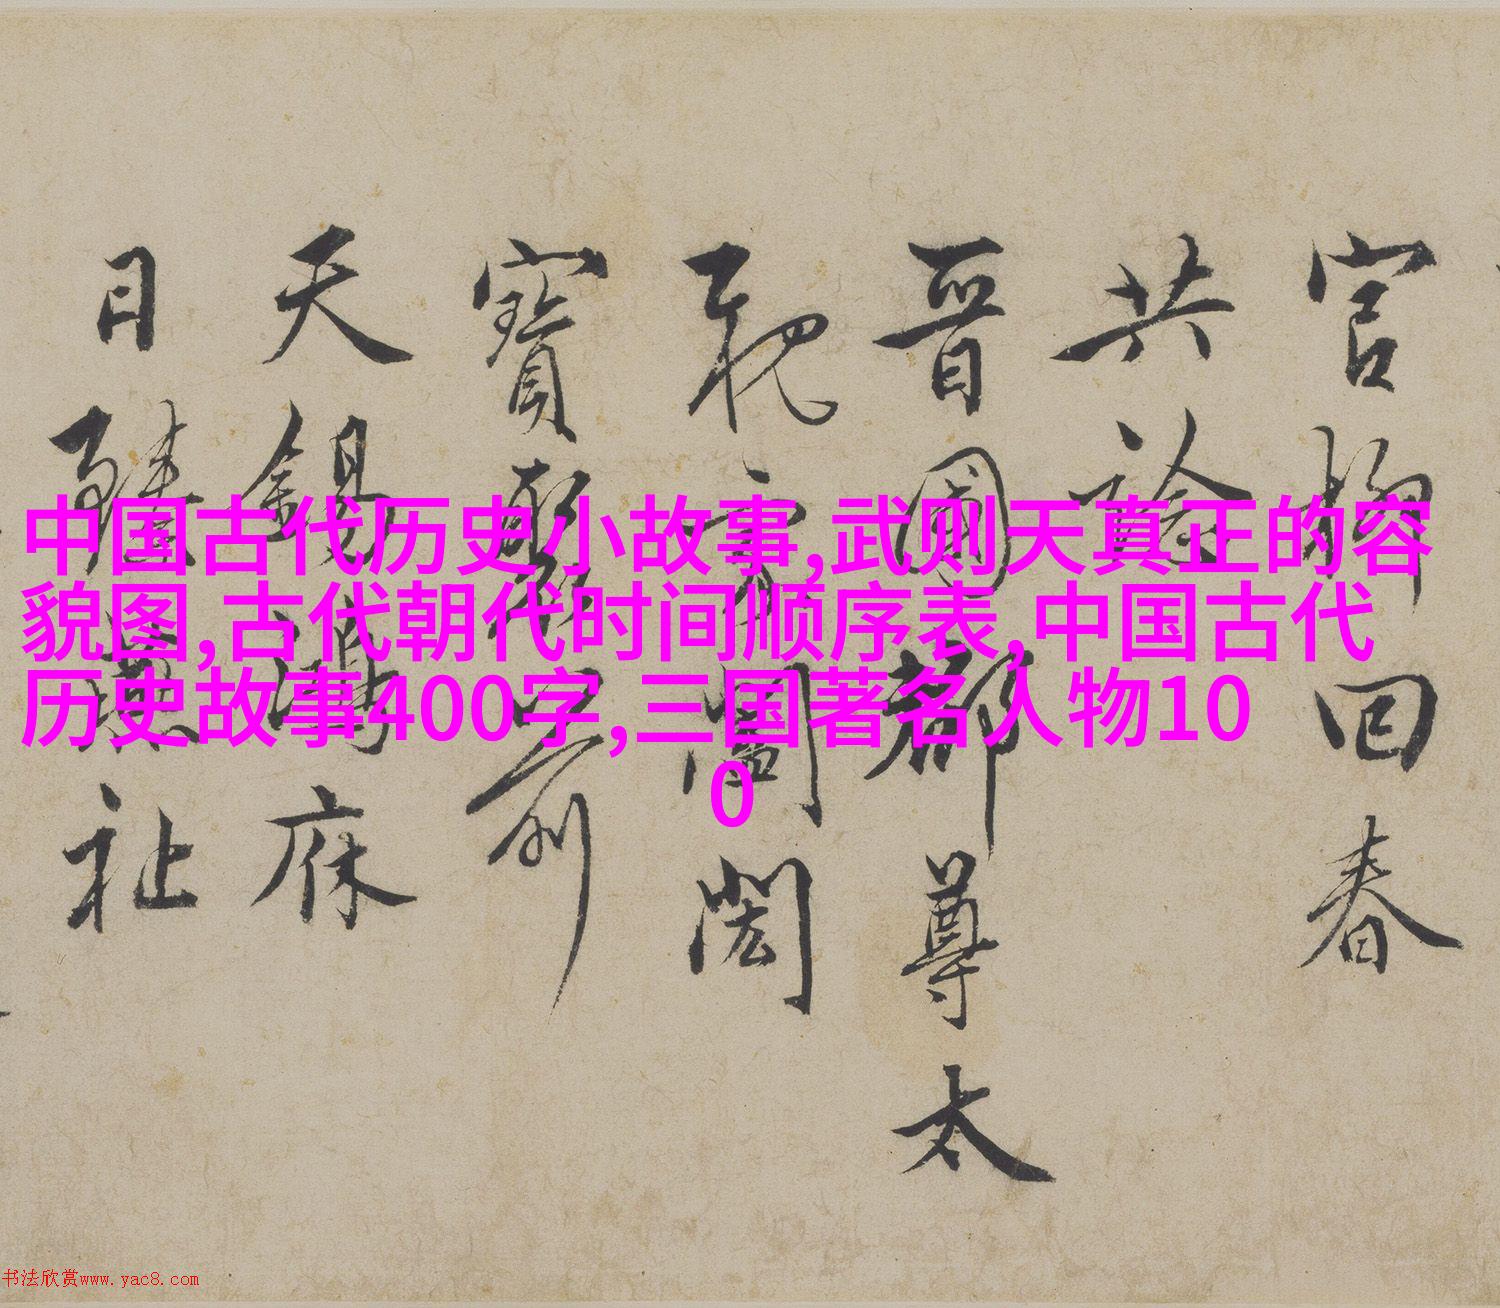 官柳回春
共
晉國都尊太
闔閎
寶前
天錫鴻庥
日祉
中国古代历史小故事,武则天真正的容
貌图,古代朝代时间顺序表,中国古代
历史故事400字,三国著名人物10
0
书法欣赏www.yac8.com